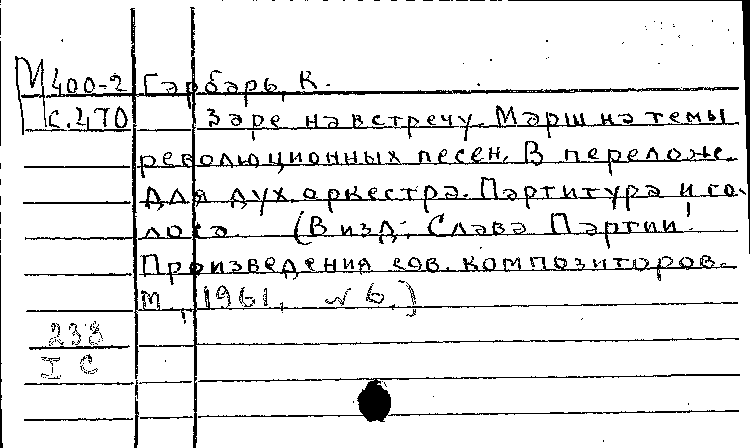 М400-2 Гарбарь, К.
с.470 Заре навстречу. Марш на темы
революционных песен. В переложе.
для дух. оркестра. Партитура и го-
лоса (В изд: Слава Партии!
Произведения сов. композиторов.
М., 1961, № 6.)
238
I C